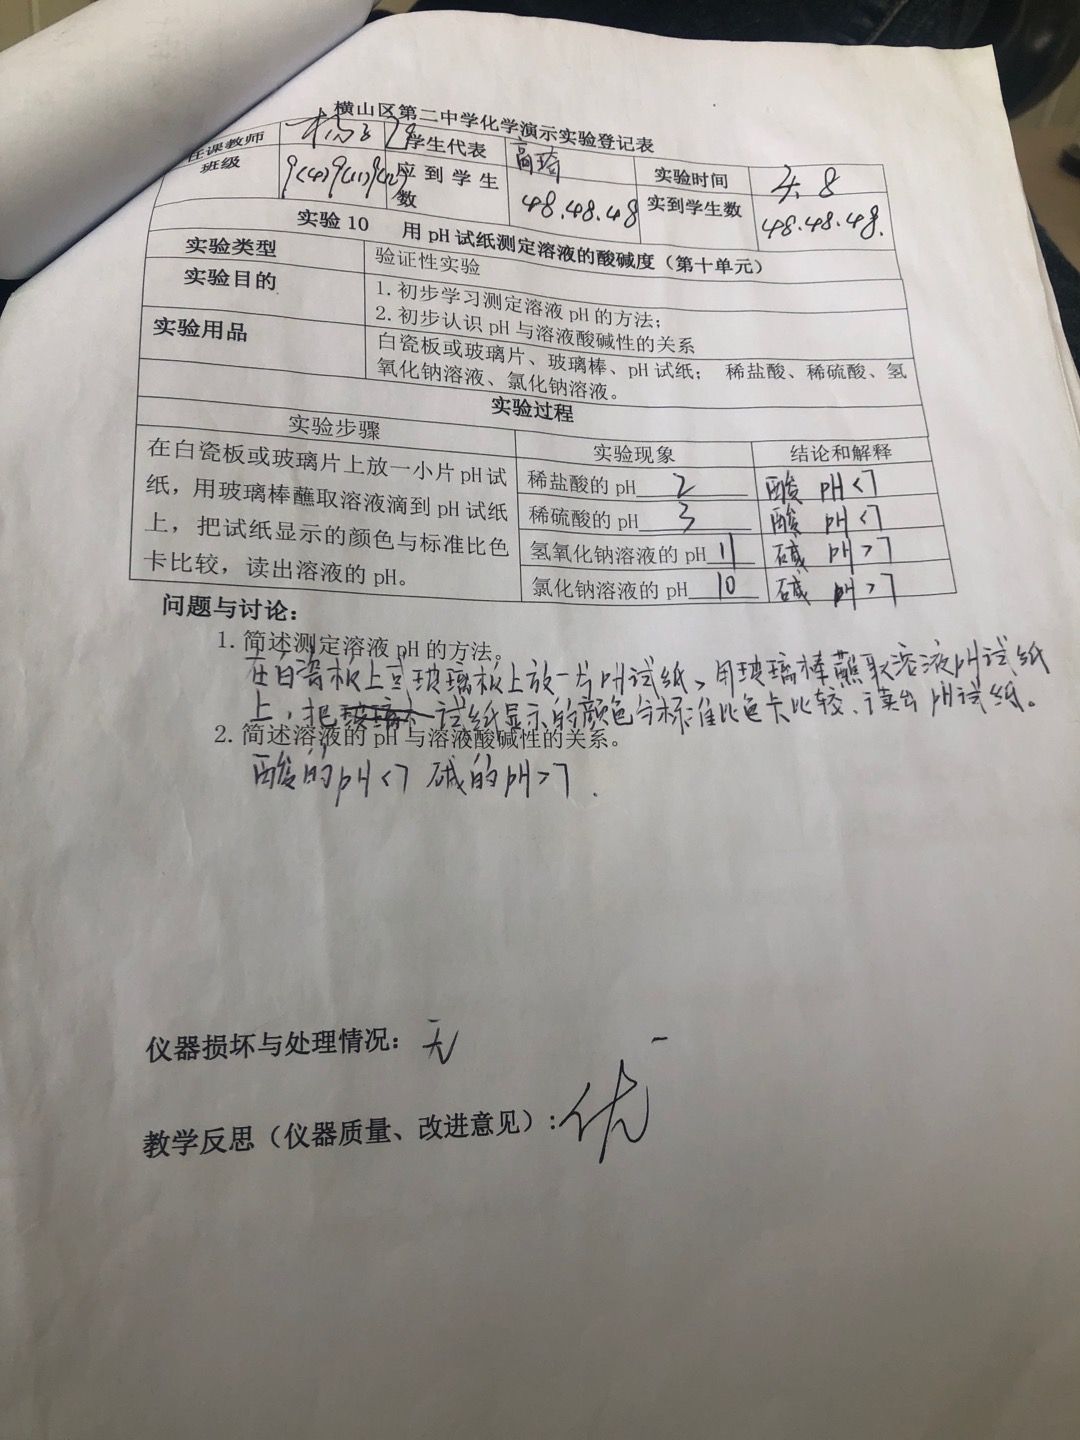 横山区第二中学化学演示实验登记表
任课教师 学生代表 高 实验时间 8
班级 9(4)9(11)9(12) 应到学生数 48.48.48 实到学生数 48.48.48.
实验 10 用 pH 试纸测定溶液的酸碱度（第十单元）
实验类型 验证性实验
实验目的 1.初步学习测定溶液 pH 的方法；
2.初步认识 pH 与溶液酸碱性的关系
实验用品 白瓷板或玻璃片、玻璃棒、pH 试纸； 稀盐酸、稀硫酸、氢
氧化钠溶液、氯化钠溶液。
实验过程
实验步骤 实验现象 结论和解释
在白瓷板或玻璃片上放一小片 pH 试
纸，用玻璃棒蘸取溶液滴到 pH 试纸
上，把试纸显示的颜色与标准比色
卡比较，读出溶液的 pH。
稀盐酸的 pH 2 酸 pH<7
稀硫酸的 pH 3 酸 pH<7
氢氧化钠溶液的 pH 11 碱 pH>7
氯化钠溶液的 pH 10 碱 pH>7
问题与讨论：
1.简述测定溶液 pH 的方法。
在白瓷板上或玻璃板上放一片pH试纸、用玻璃棒蘸取溶液pH试纸
上，把试纸显示的颜色与标准比色卡比较、读出pH试纸。
2.简述溶液的 pH 与溶液酸碱性的关系。
酸的pH<7 碱的pH>7.
仪器损坏与处理情况：无
教学反思（仪器质量、改进意见）：优